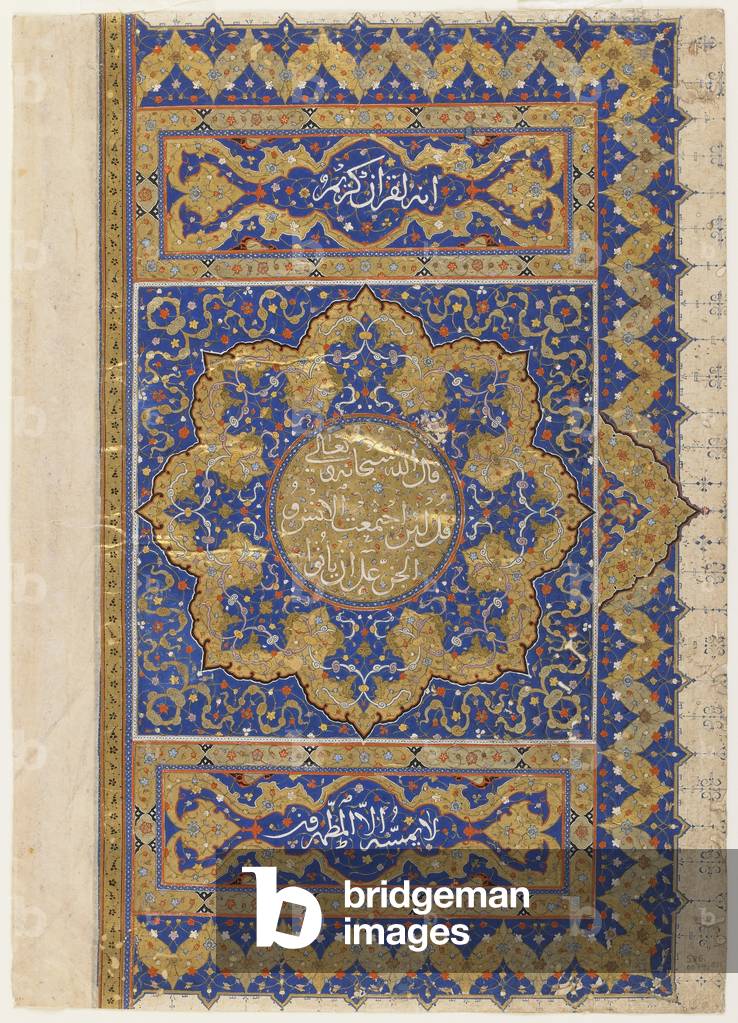 انه لقران كريم
قال الله سبحانه وتعالى
قل لئن اجتمعت الانس و
الجن على ان ياتوا
لا يمسه الا المطهرون
bridgeman
images